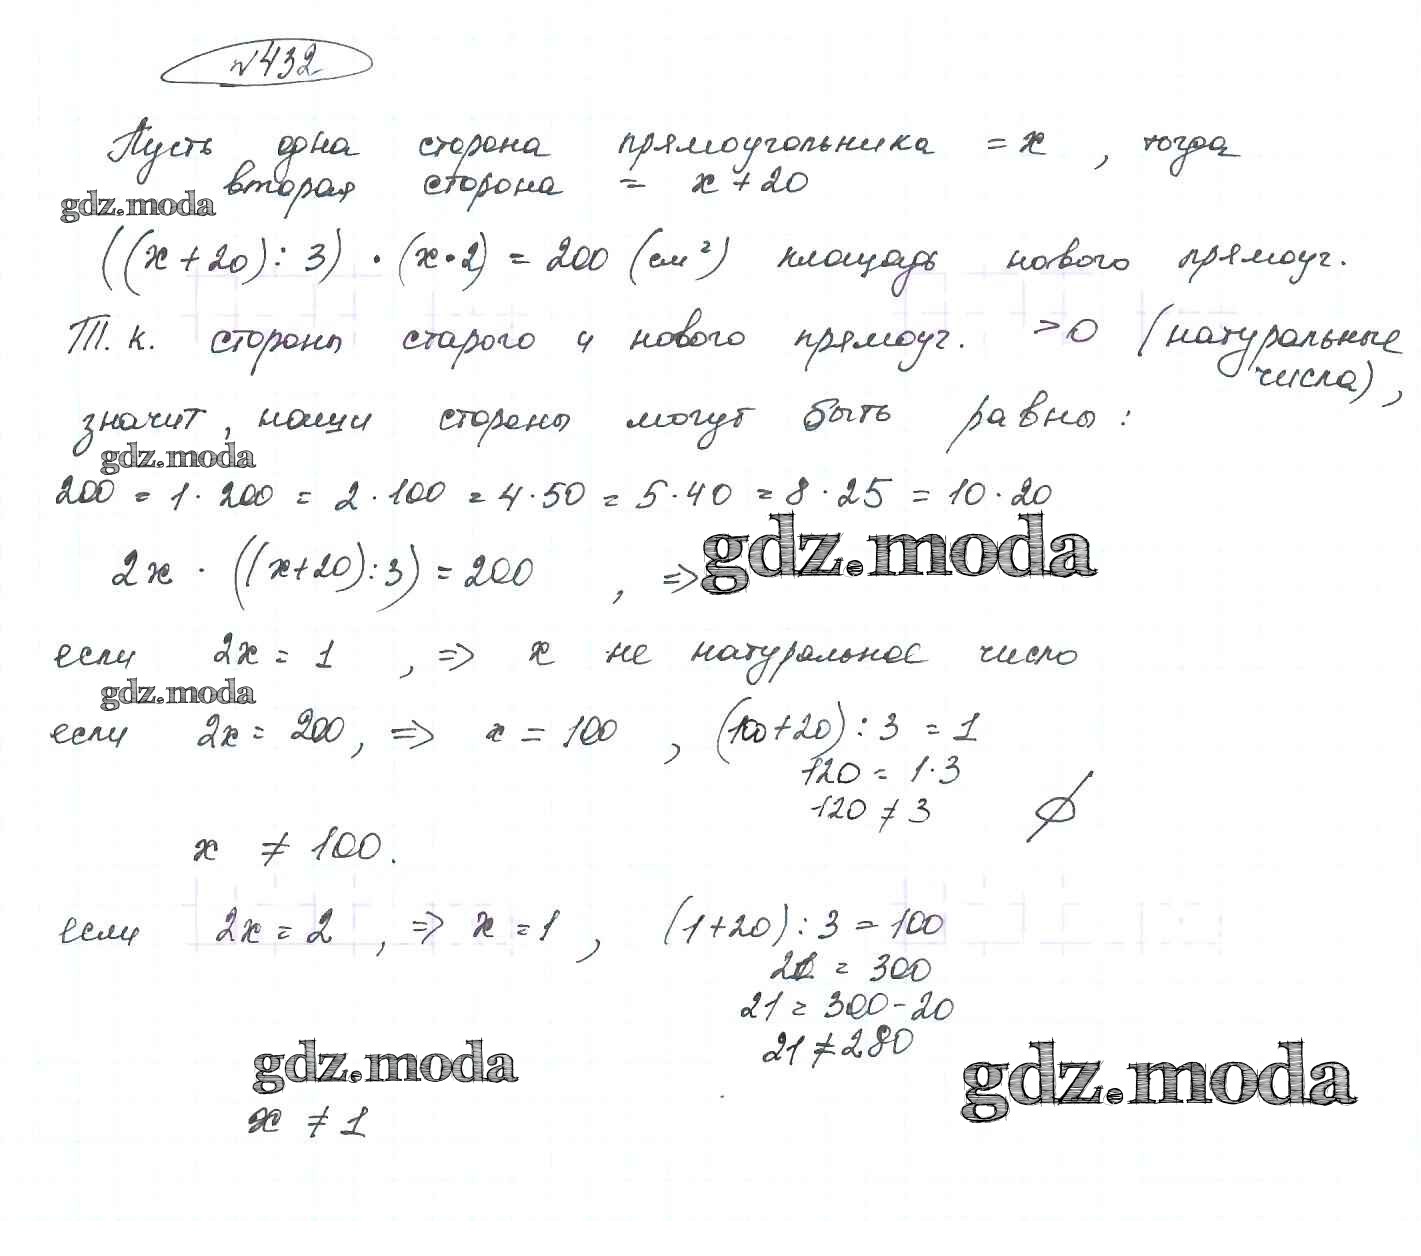 №432
Пусть одна сторона прямоугольника = x , тогда
вторая сторона = x + 20
gdz.moda
((x + 20) : 3) · (x · 2) = 200 (см²) площадь нового прямоуг.
Т. к. стороны старого и нового прямоуг. > 0 (натуральные
числа) ,
значит, наши стороны могут быть равны :
gdz.moda
200 = 1 · 200 = 2 · 100 = 4 · 50 = 5 · 40 = 8 · 25 = 10 · 20
2x · ((x+20) : 3) = 200 , => gdz.moda
если 2x = 1 , => x не натуральное число
gdz.moda
если 2x = 200 , => x = 100 , (100+20) : 3 = 1
120 = 1·3
120 ≠ 3 ∅
x ≠ 100.
если 2x = 2 , => x = 1 , (1+20) : 3 = 100
21 = 300
21 = 300 - 20
21 ≠ 280
gdz.moda gdz.moda
x ≠ 1